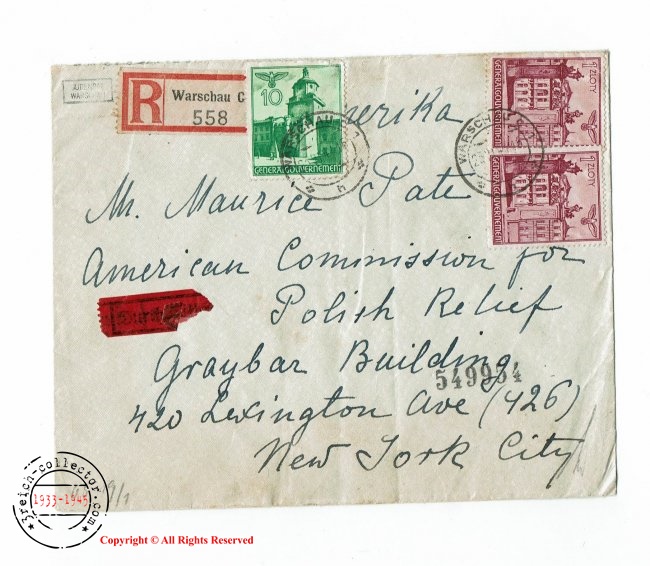 JUDENRAT
WARSCHAU
R
Warschau C
558
10
GENERALGOUVERNEMENT
WARSCHAU
1 ZŁOTY
GENERALGOUVERNEMENT
WARSCHAU
1 ZŁOTY
GENERALGOUVERNEMENT
Amerika
Mr. Maurice Pate
American Commission for
Polish Relief
Graybar Building
549934
420 Lexington Ave (426)
New York City
3reich-collector.com
1933-1945
Copyright © All Rights Reserved